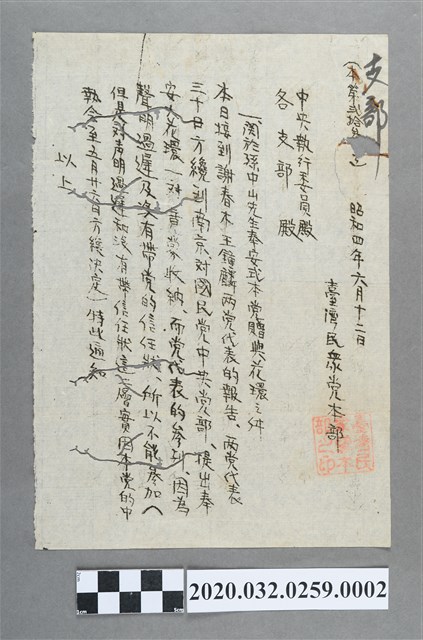 支部
昭和四年六月十二日
臺湾民衆党本部
中央執行委員殿
各支部 殿
一関於孫中山先生奉安式本党贈與花環之件
本日接到謝春木王鐘麟両党代表的報告、両党代表
三十日方纔到南京対國民党中央党部、提出奉
安花環一対、而党代表的参列、因為
声明過遅及没有帯党的信任状、所以不能参加（
但是対声明過遅和没有帯信任状這層實因本党的中
執会至五月廿六日方纔決定）特此通知
以上
2020.032.0259.0002